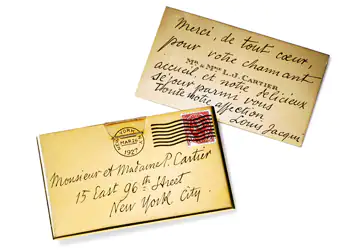 Merci, de tout cœur,
pour votre charmant
Mr & Mme L-J. CARTIER
accueil et notre délicieux
séjour parmi vous
Toute notre affection
Louis Jacques
NEW YORK, N.Y.
MAR 26
1927
Monsieur et Madame P. Cartier
15 East 96th Street
New York City.